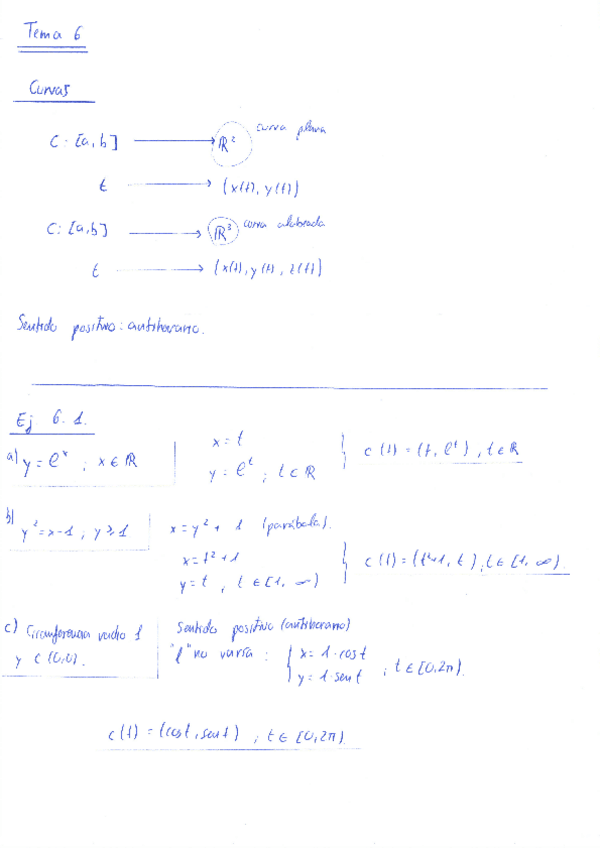 Tema 6
Curvas
C: [a, b] → ℝ² curva plana
t → (x(t), y(t))
C: [a, b] → ℝ³ curva alabeada
t → (x(t), y(t), z(t))
Sentido positivo: antihorario.
Ej 6.1.
a) y = eˣ ; x ∈ ℝ
x = t
y = eᵗ ; t ∈ ℝ
c(t) = (t, eᵗ), t ∈ ℝ
b) y² = x-1 ; y ≥ 1
x = y² + 1 (parábola).
x = t² + 1
y = t , t ∈ [1, ∞)
c(t) = (t²+1, t), t ∈ [1, ∞).
c) Circunferencia radio 1
y C (0,0).
Sentido positivo (antihorario)
no varía : { x = 1·cos t
y = 1·sen t ; t ∈ [0, 2π).
c(t) = (cos t, sen t) ; t ∈ [0, 2π).